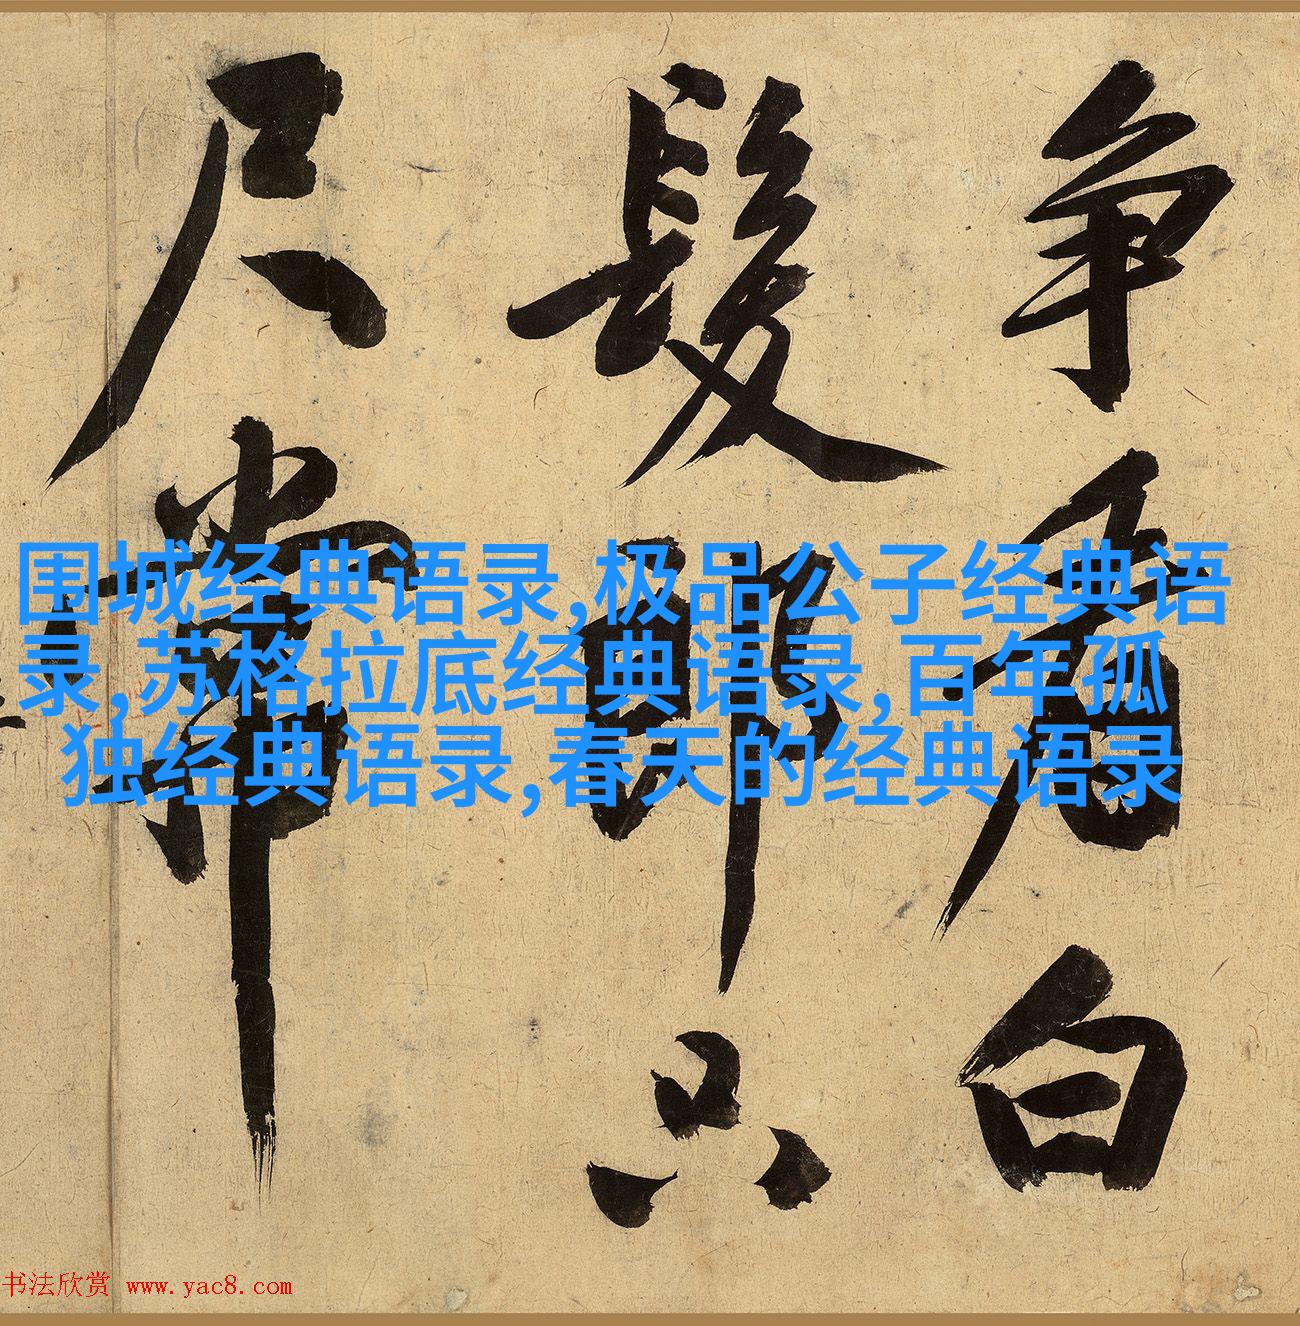 争看白
髮郎只
尺常
围城经典语录,极品公子经典语
录,苏格拉底经典语录,百年孤
独经典语录,春天的经典语录
书法欣赏 www.yac8.com